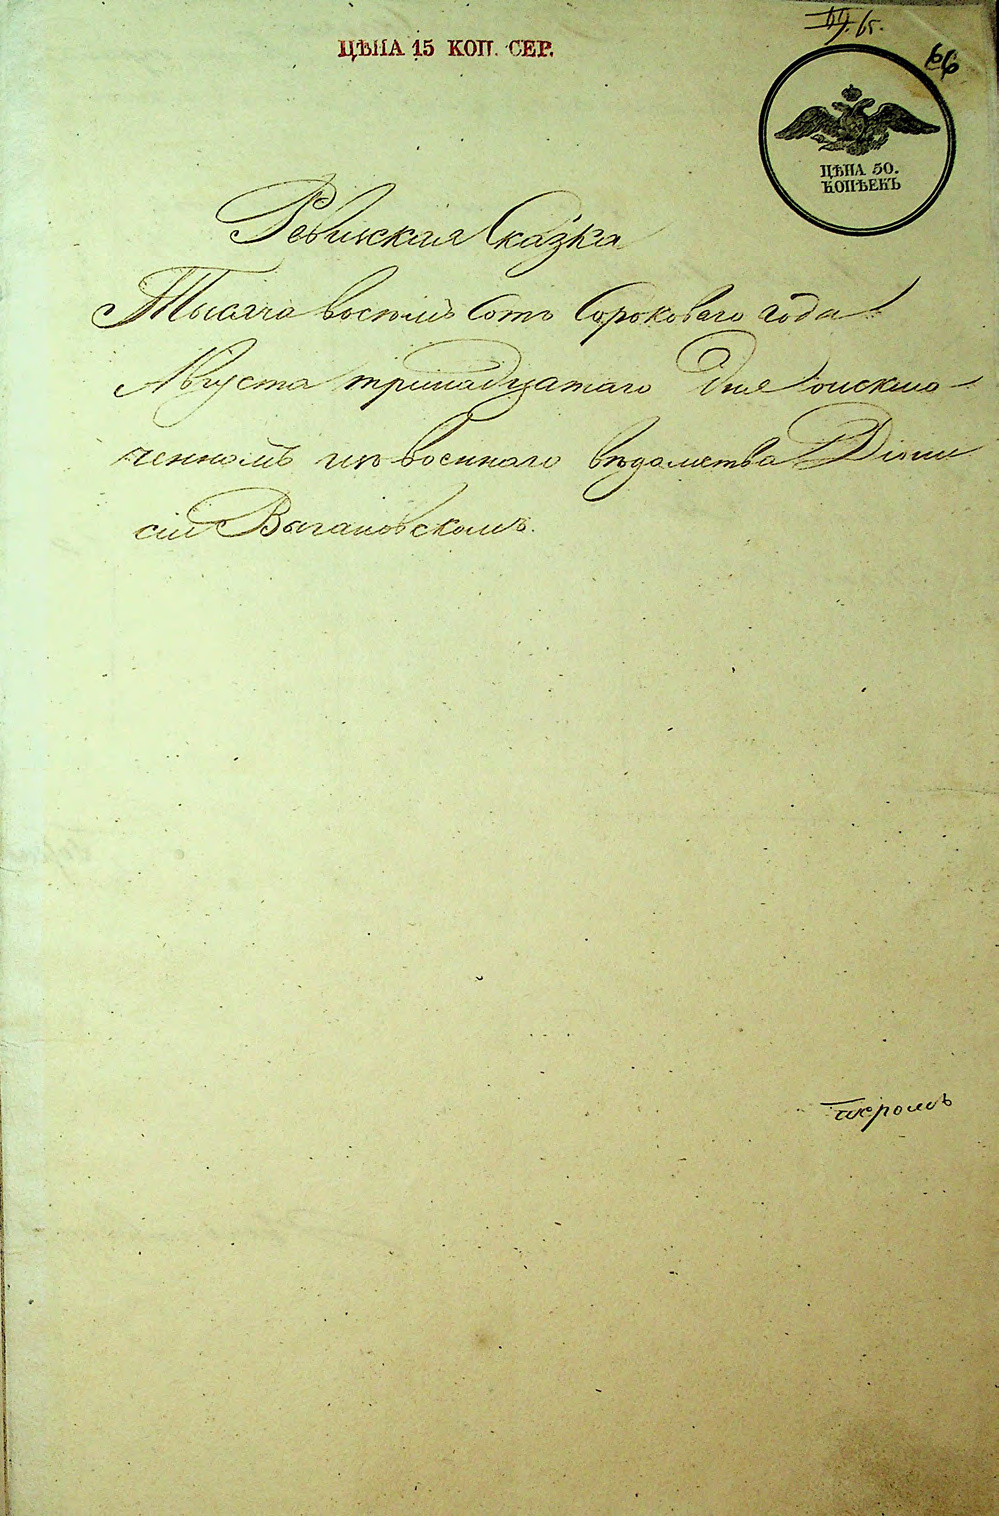 ЦѢНА 15 КОП. СЕР.
65.
66
ЦѢНА 50.
КОПѢЕКЪ
Ревижская Сказка
Тысяча восемь Сотъ Сороковаго года
Августа тринадцатаго Дня Оисклю-
ченномъ изъ военнаго вѣдомства Діони
сіи Вагановскомъ.